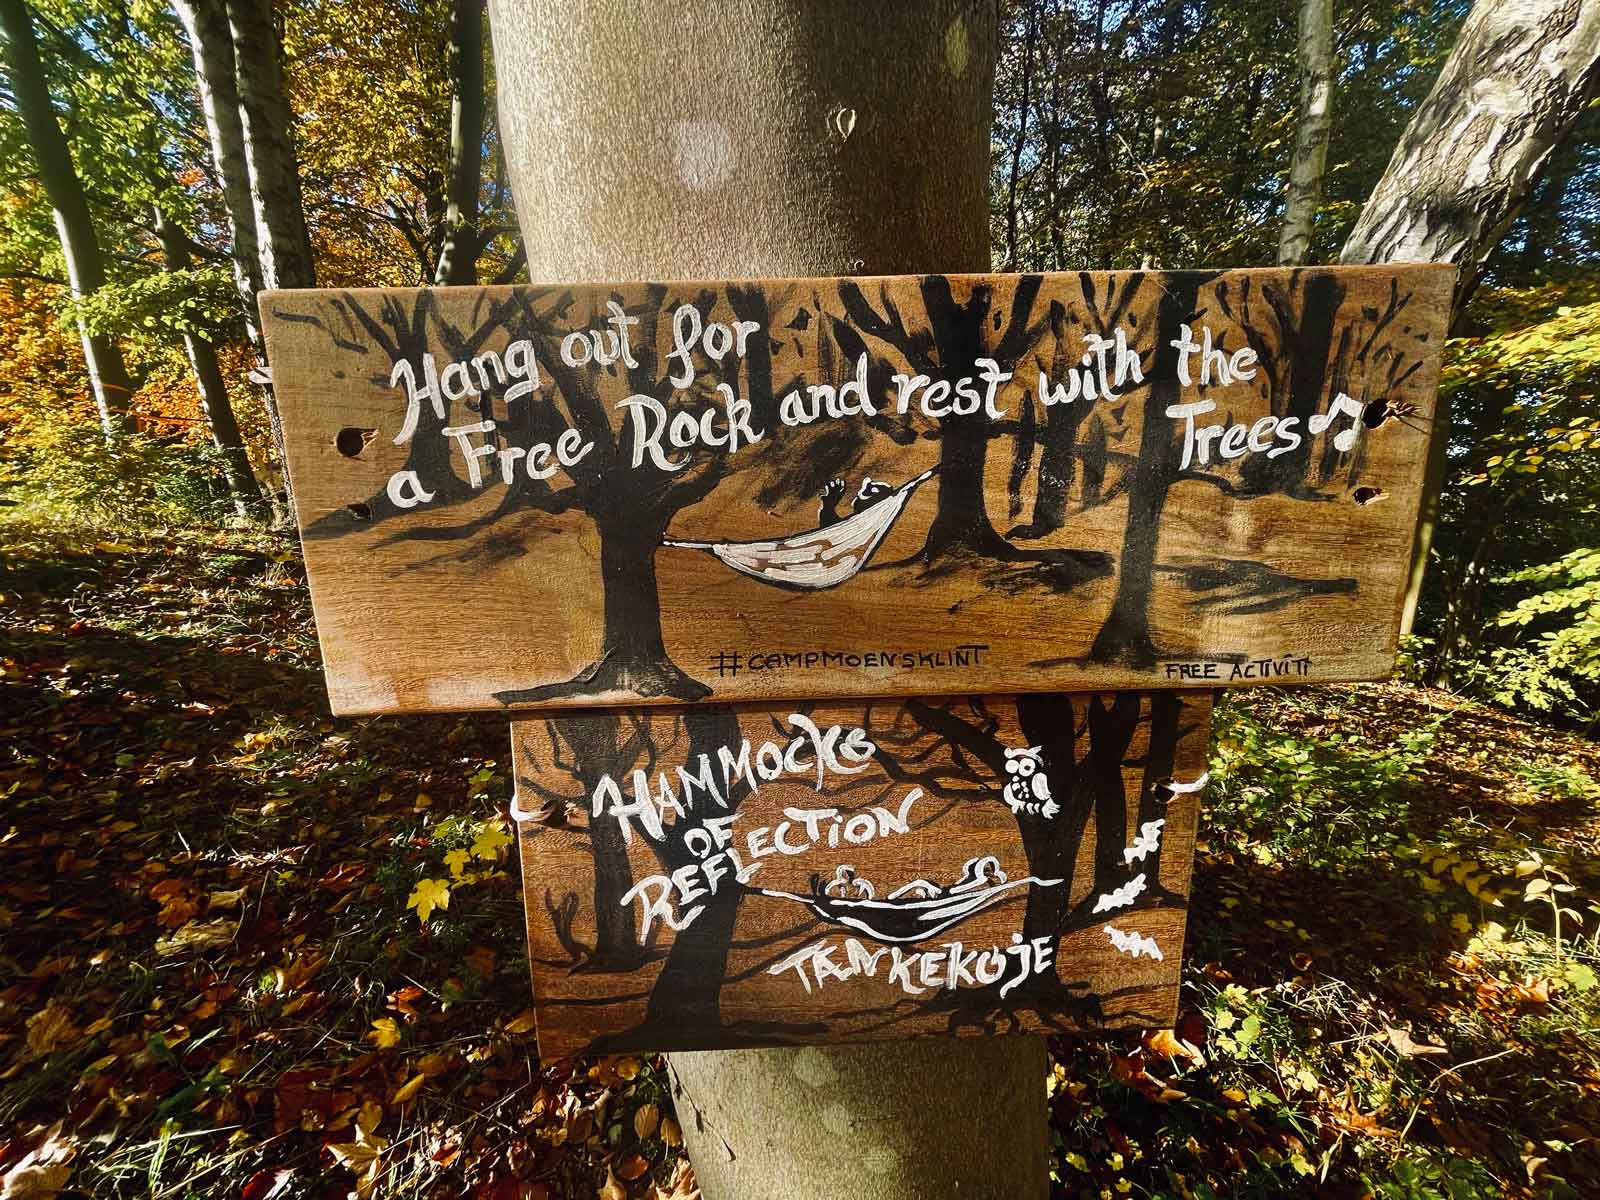 Hang out for
a Free Rock and rest with the
Trees
#CAMPMOENSKLINT
FREE ACTIVITI
HAMMOCKS
OF
REFLECTION
TANKEKØJE